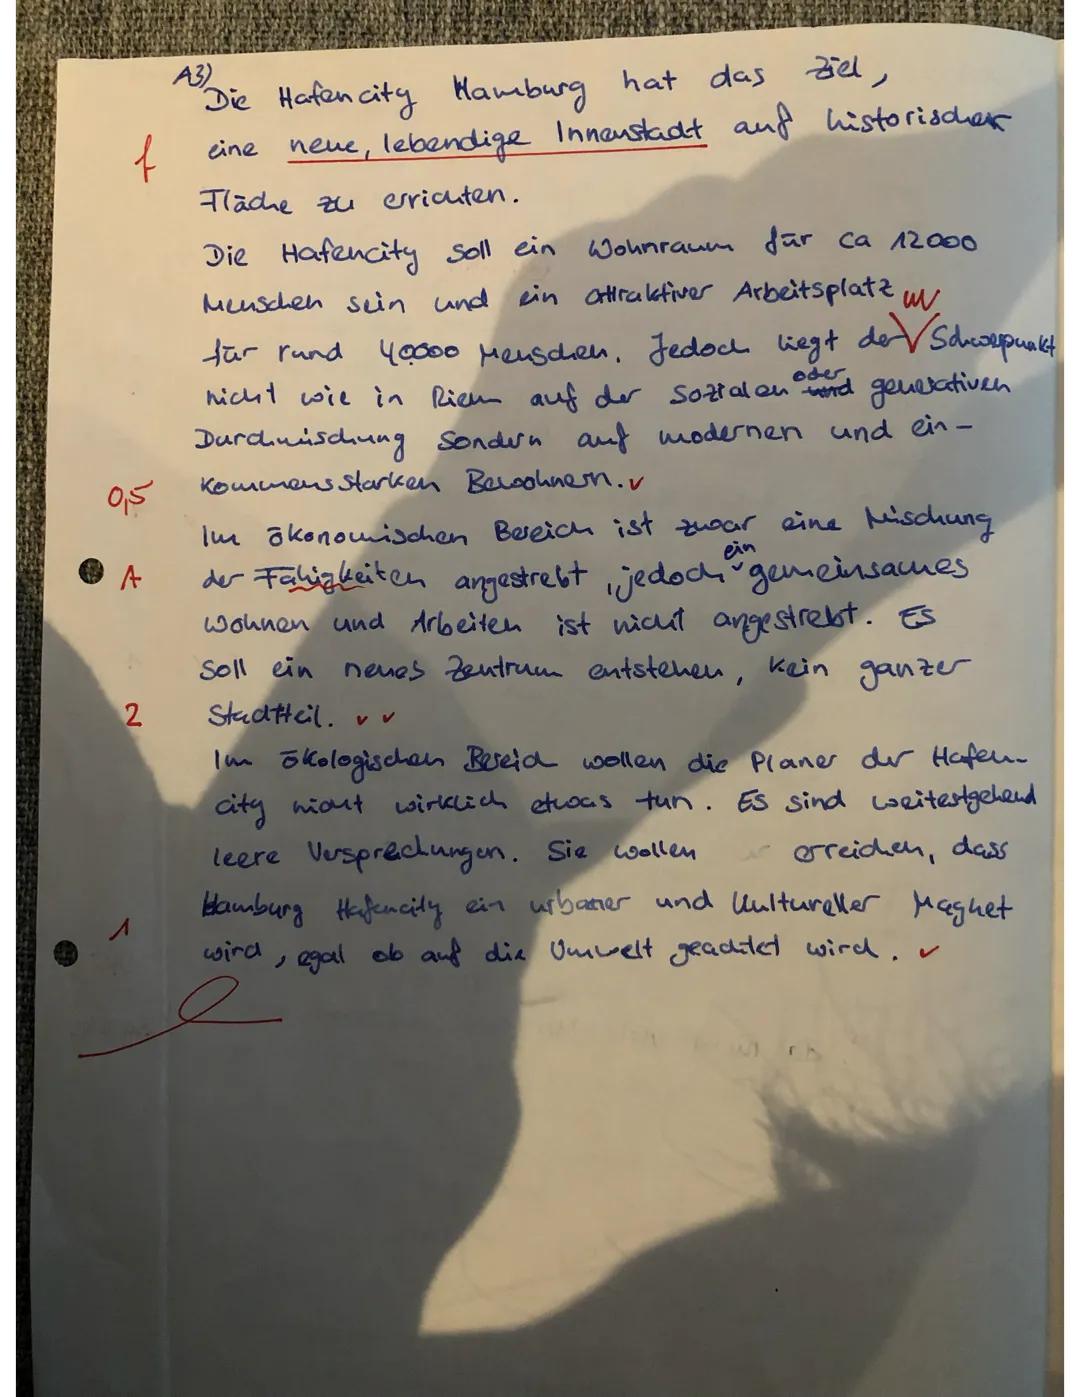 A3)
Die Hafencity Hamburg hat das Ziel,
f eine neue, lebendige Innenstadt auf historischer
Fläche zu errichten.
Die Hafencity soll ein Wohnraum für ca 12000
Menschen sein und ein attraktiver Arbeitsplatz
für rund 40000 Menschen. Jedoch liegt der Schwerpunkt
nicht wie in Riem auf der sozialen oder generativen
Durchmischung sondern auf modernen und ein-
0,5 kommensstarken Bewohnern. ✓
Im ökonomischen Bereich ist zwar eine Mischung
A der Fähigkeiten angestrebt, jedoch ein gemeinsames
Wohnen und Arbeiten ist nicht angestrebt. Es
soll ein neues Zentrum entstehen, kein ganzer
2 Stadtteil. ✓ ✓
Im ökologischen Bereich wollen die Planer der Hafen-
city nicht wirklich etwas tun. Es sind weitestgehend
leere Versprechungen. Sie wollen erreichen, dass
Hamburg Hafencity ein urbaner und kultureller Magnet
1 wird, egal ob auf die Umwelt geachtet wird. ✓